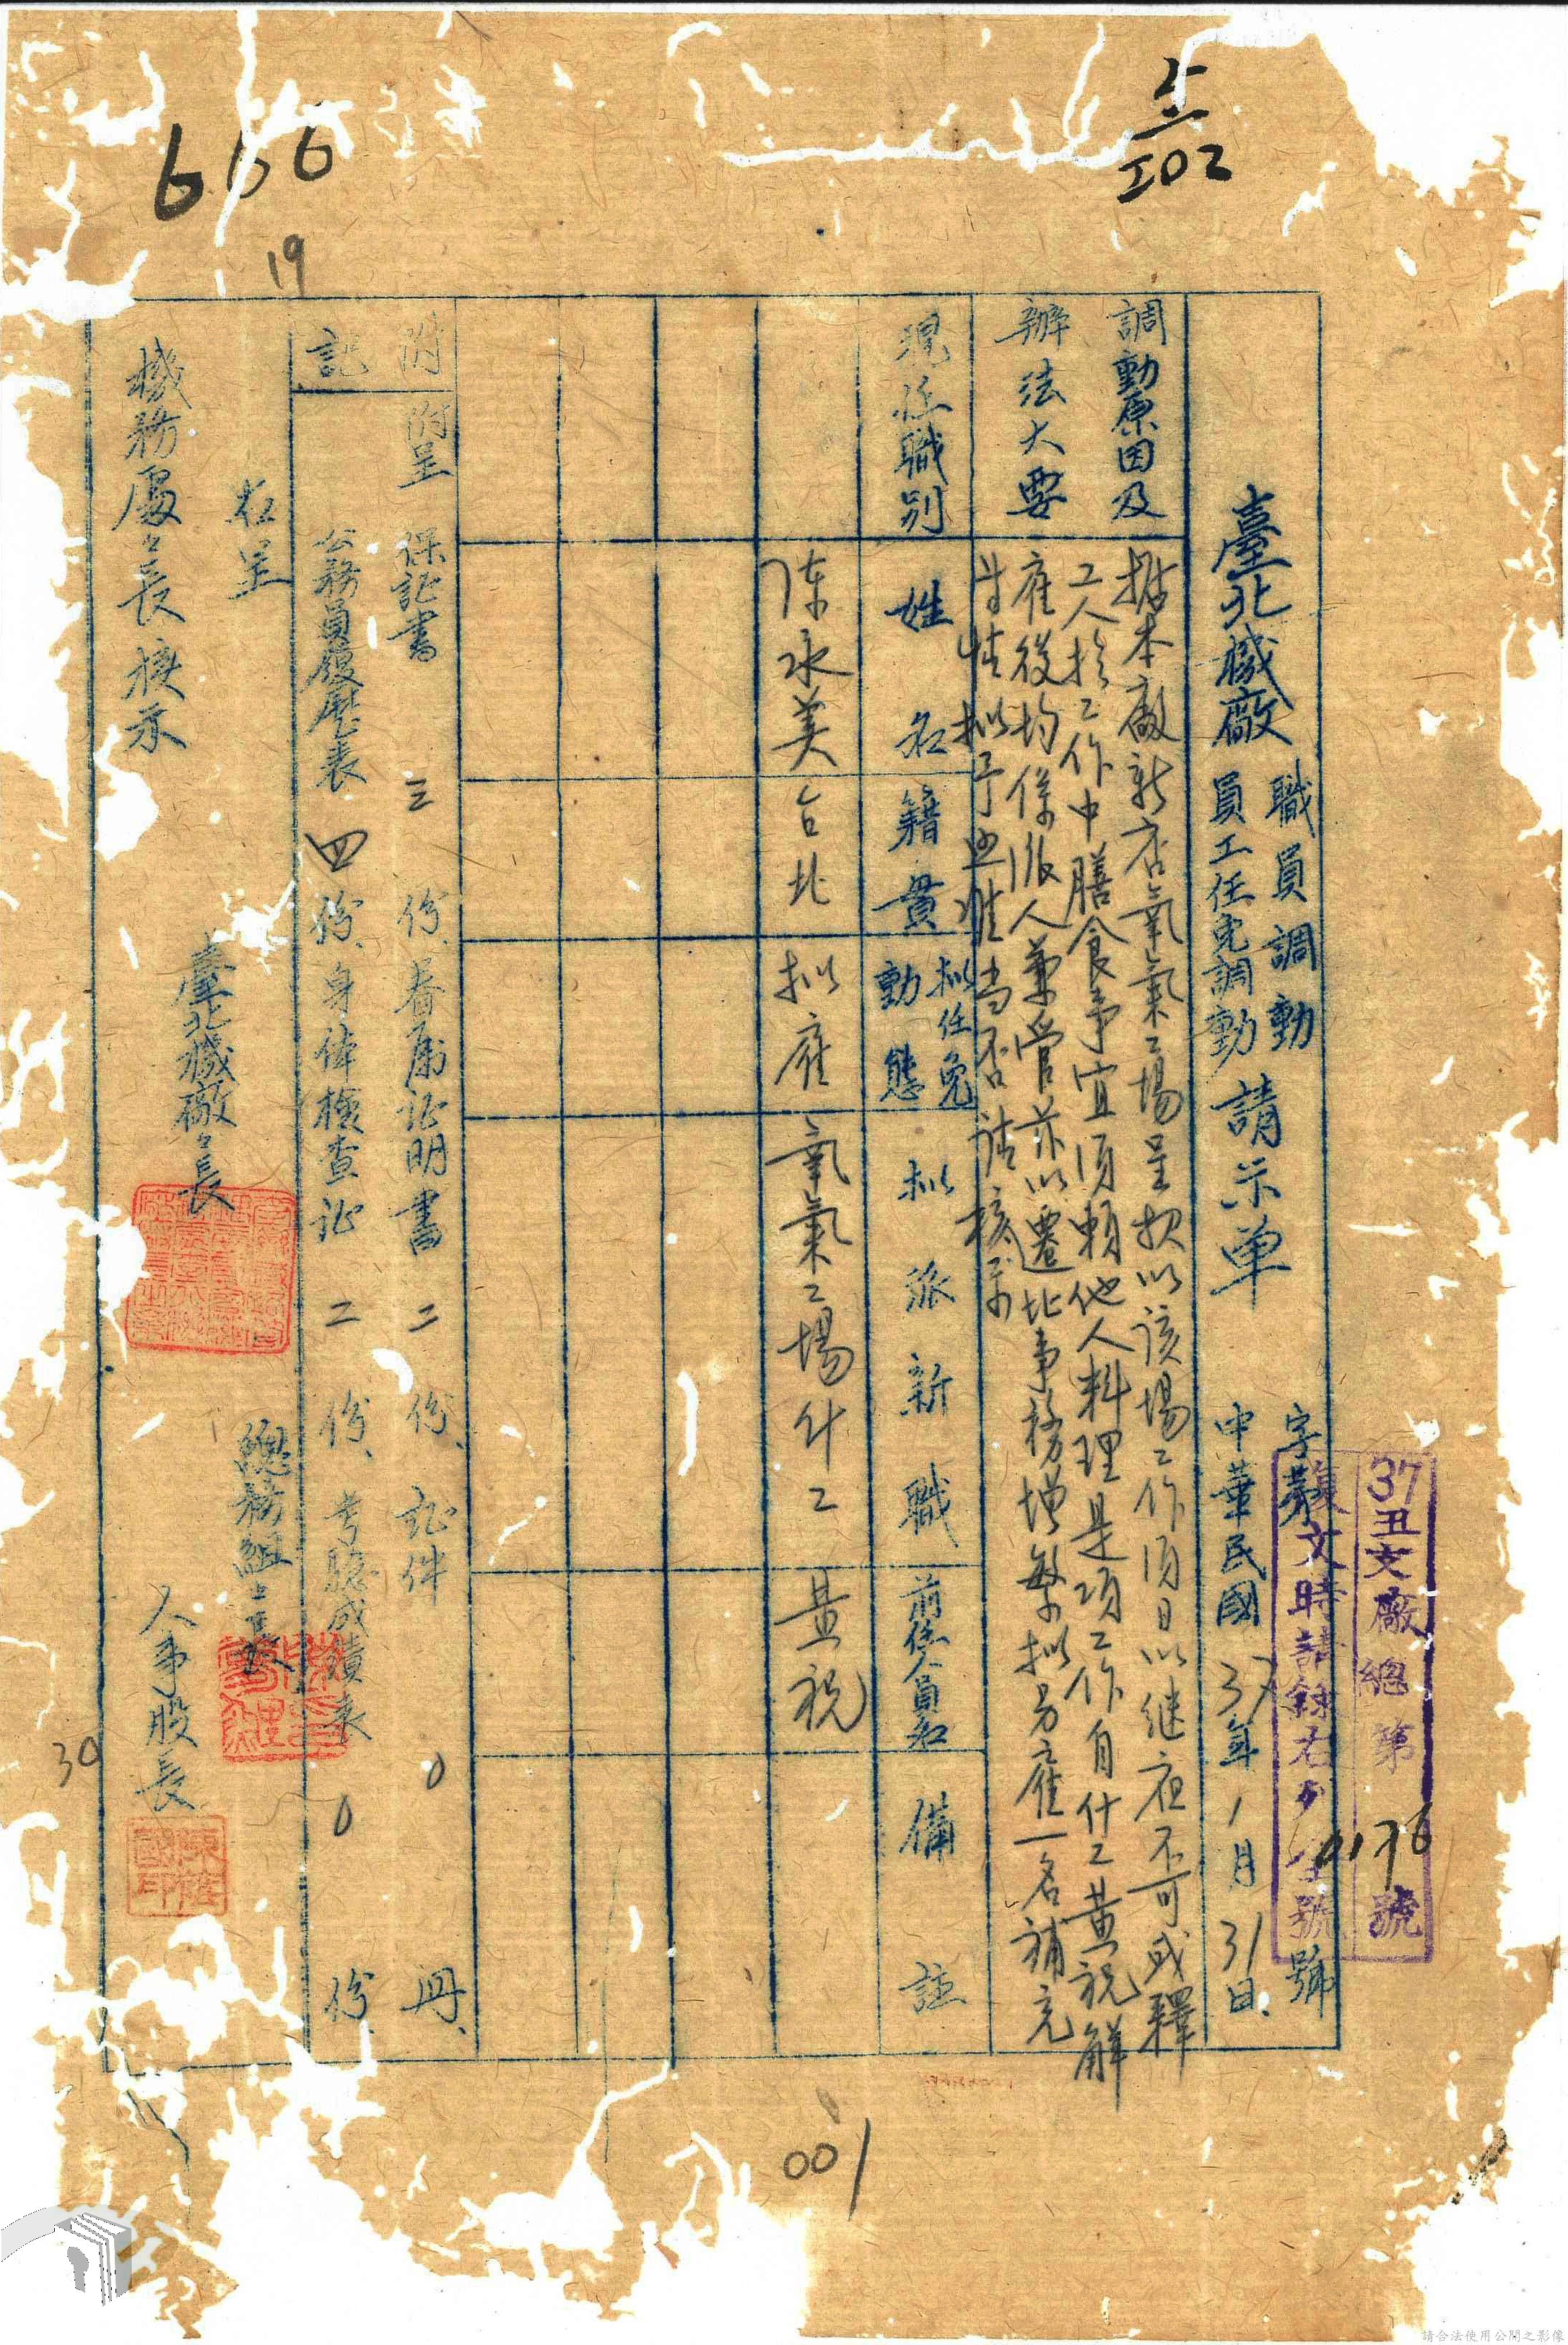 上
102
666
19
37丑文廠總第0176號
復文時請錄右列全號
字第 號
中華民國37年1月31日
臺北機廠 職員調動 請示单
員工任免調動
調動原因及
辦法大要
據本廠新店氧氣工場呈報以該場工作須日以继夜不可或釋
工人於工作中膳食事宜須賴他人料理是項工作自什工黃祝解
雇後均係派人兼管茲以遷北事務增繁拟另雇一名補充
拟予 当否请核示
現任職別
姓名
籍貫
拟任免
動態
拟派新職
前任人員名
備註
陈永美
台北
拟雇
氧氣工場什工
黃祝
附記
附呈 保証書 三 份、眷属証明書 二 份、証件 0 冊、
公務員履歷表 四 份、身体檢查証 二 份、考驗成績表 0 份、
右呈
機務處々長核示
臺北機廠々長
總務組々長
人事股長
30
001
請合法使用公開之影像